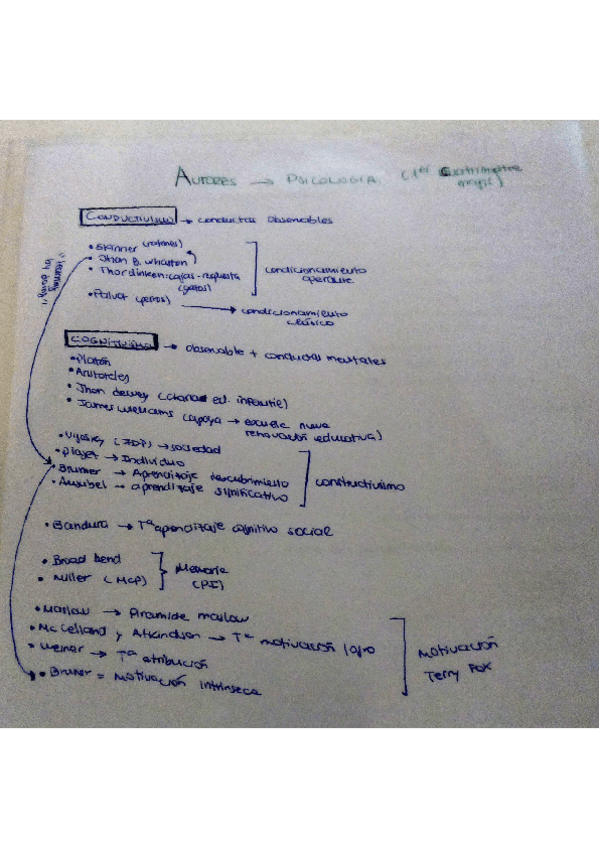 AUTORES → PSICOLOGIA (1er Cuatrimestre
magis)
CONDUCTIVISMO → conductas observables
• Skinner (ratones)
• Jhon B. whatson
• Thordinken: cajas-respuesta
(gatos)
condicionamiento
operante
"learning
by doing"
• Pavlov (perros) → condicionamiento
clásico
COGNITIVISMO → observable + conductas mentales
• Platón
• Aristoteles
• Jhon dewey (ed. infantil)
• James Williams (apoya → escuela nueva
renovación educativa)
• Vigosky (ZDP) → sociedad
• Piajet → Individuo
• Bruner → Aprendizaje descubrimiento
• Ausubel → aprendizaje significativo
constructivismo
• Bandura → Tª aprendizaje cognitivo social
• Broad bend
• Miller (MCP)
Memoria
(PI)
• Maslow → Piramide maslow
• Mc Celland y Atkindson → Tª motivación logro
• Weiner → Tª atribución
• Bruner = Motivación intrínseca
Motivación
Terry Fox